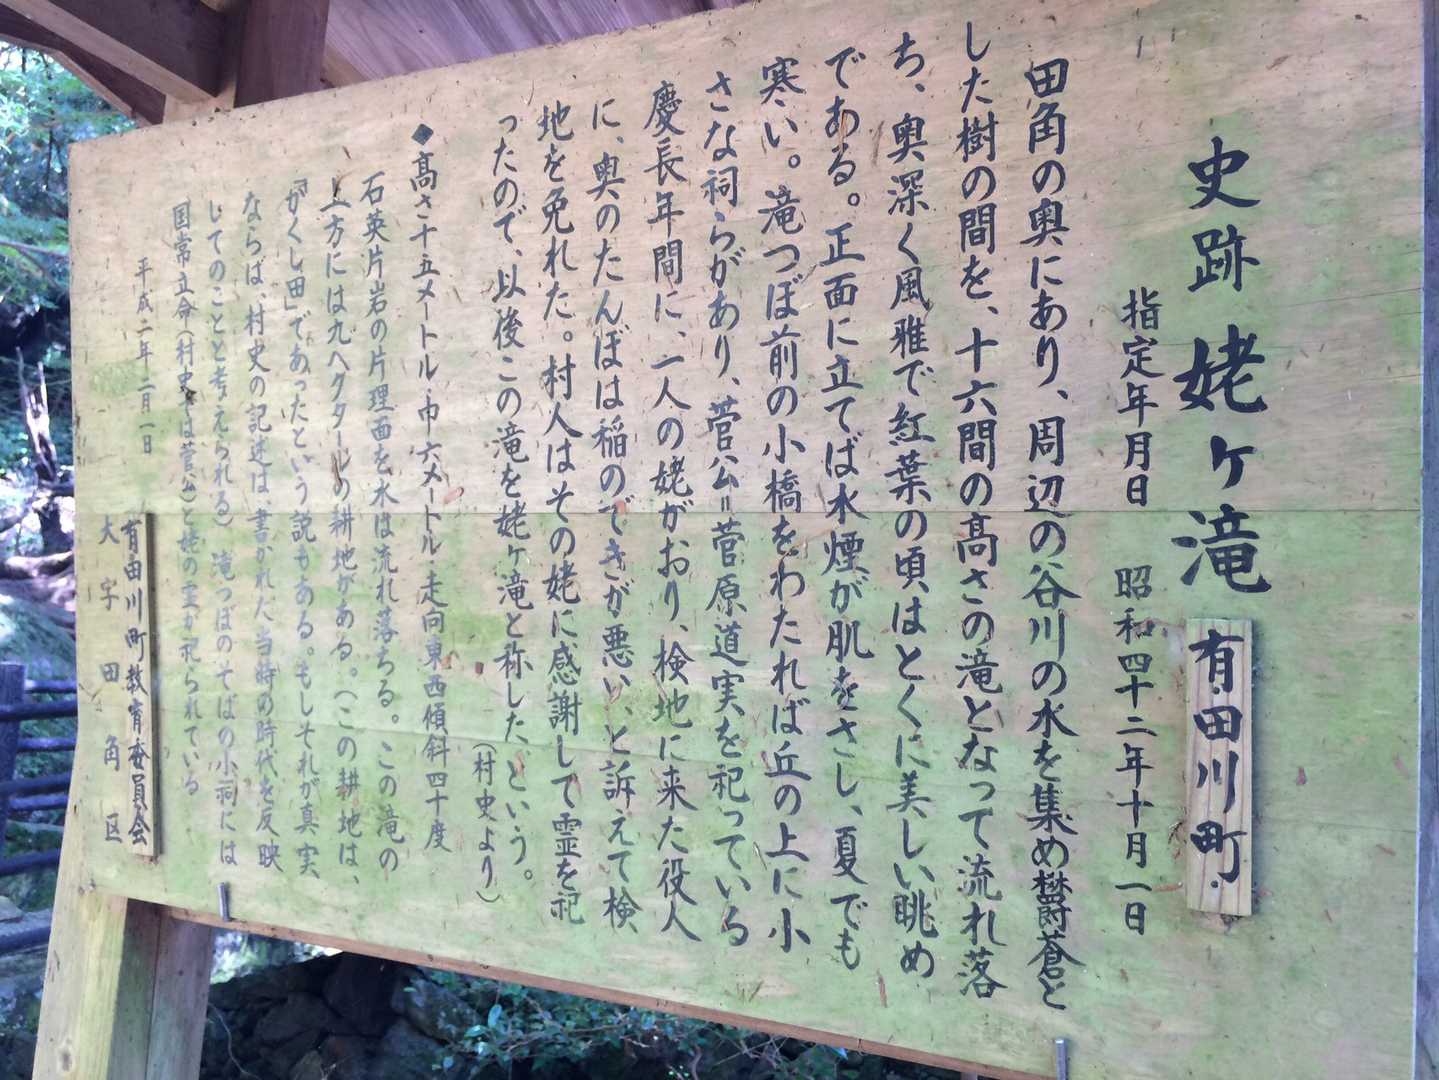 史跡 姥ヶ滝 有田川町
指定年月日 昭和四十二年十月一日
田角の奥にあり、周辺の谷川の水を集め欝蒼と
した樹の間を、十六間の高さの滝となって流れ落
ち、奥深く風雅で紅葉の頃はとくに美しい眺め
である。正面に立てば水煙が肌をさし、夏でも
寒い。滝つぼ前の小橋をわたれば丘の上に小
さな祠らがあり、菅公=菅原道実を祀っている
慶長年間に、一人の姥がおり、検地に来た役人
に、奥のたんぼは稲のできが悪い、と訴えて検
地を免れた。村人はその姥に感謝して霊を祀
ったので、以後この滝を姥ヶ滝と称したという。
(村史より)
◆高さ十五メートル・巾六メートル・走向東西傾斜四十度
石英片岩の片理面を水は流れ落ちる。この滝の
上方には九ヘクタールの耕地がある。(この耕地は、
「かくし田」であったという説もある。もしそれが真実
ならば、村史の記述は、書かれた当時の時代を反映
してのことと考えられる)滝つぼのそばの小祠には
国常立命(村史では菅公)と姥の霊が祀られている
平成二年二月一日
有田川町教育委員会
大字田角区